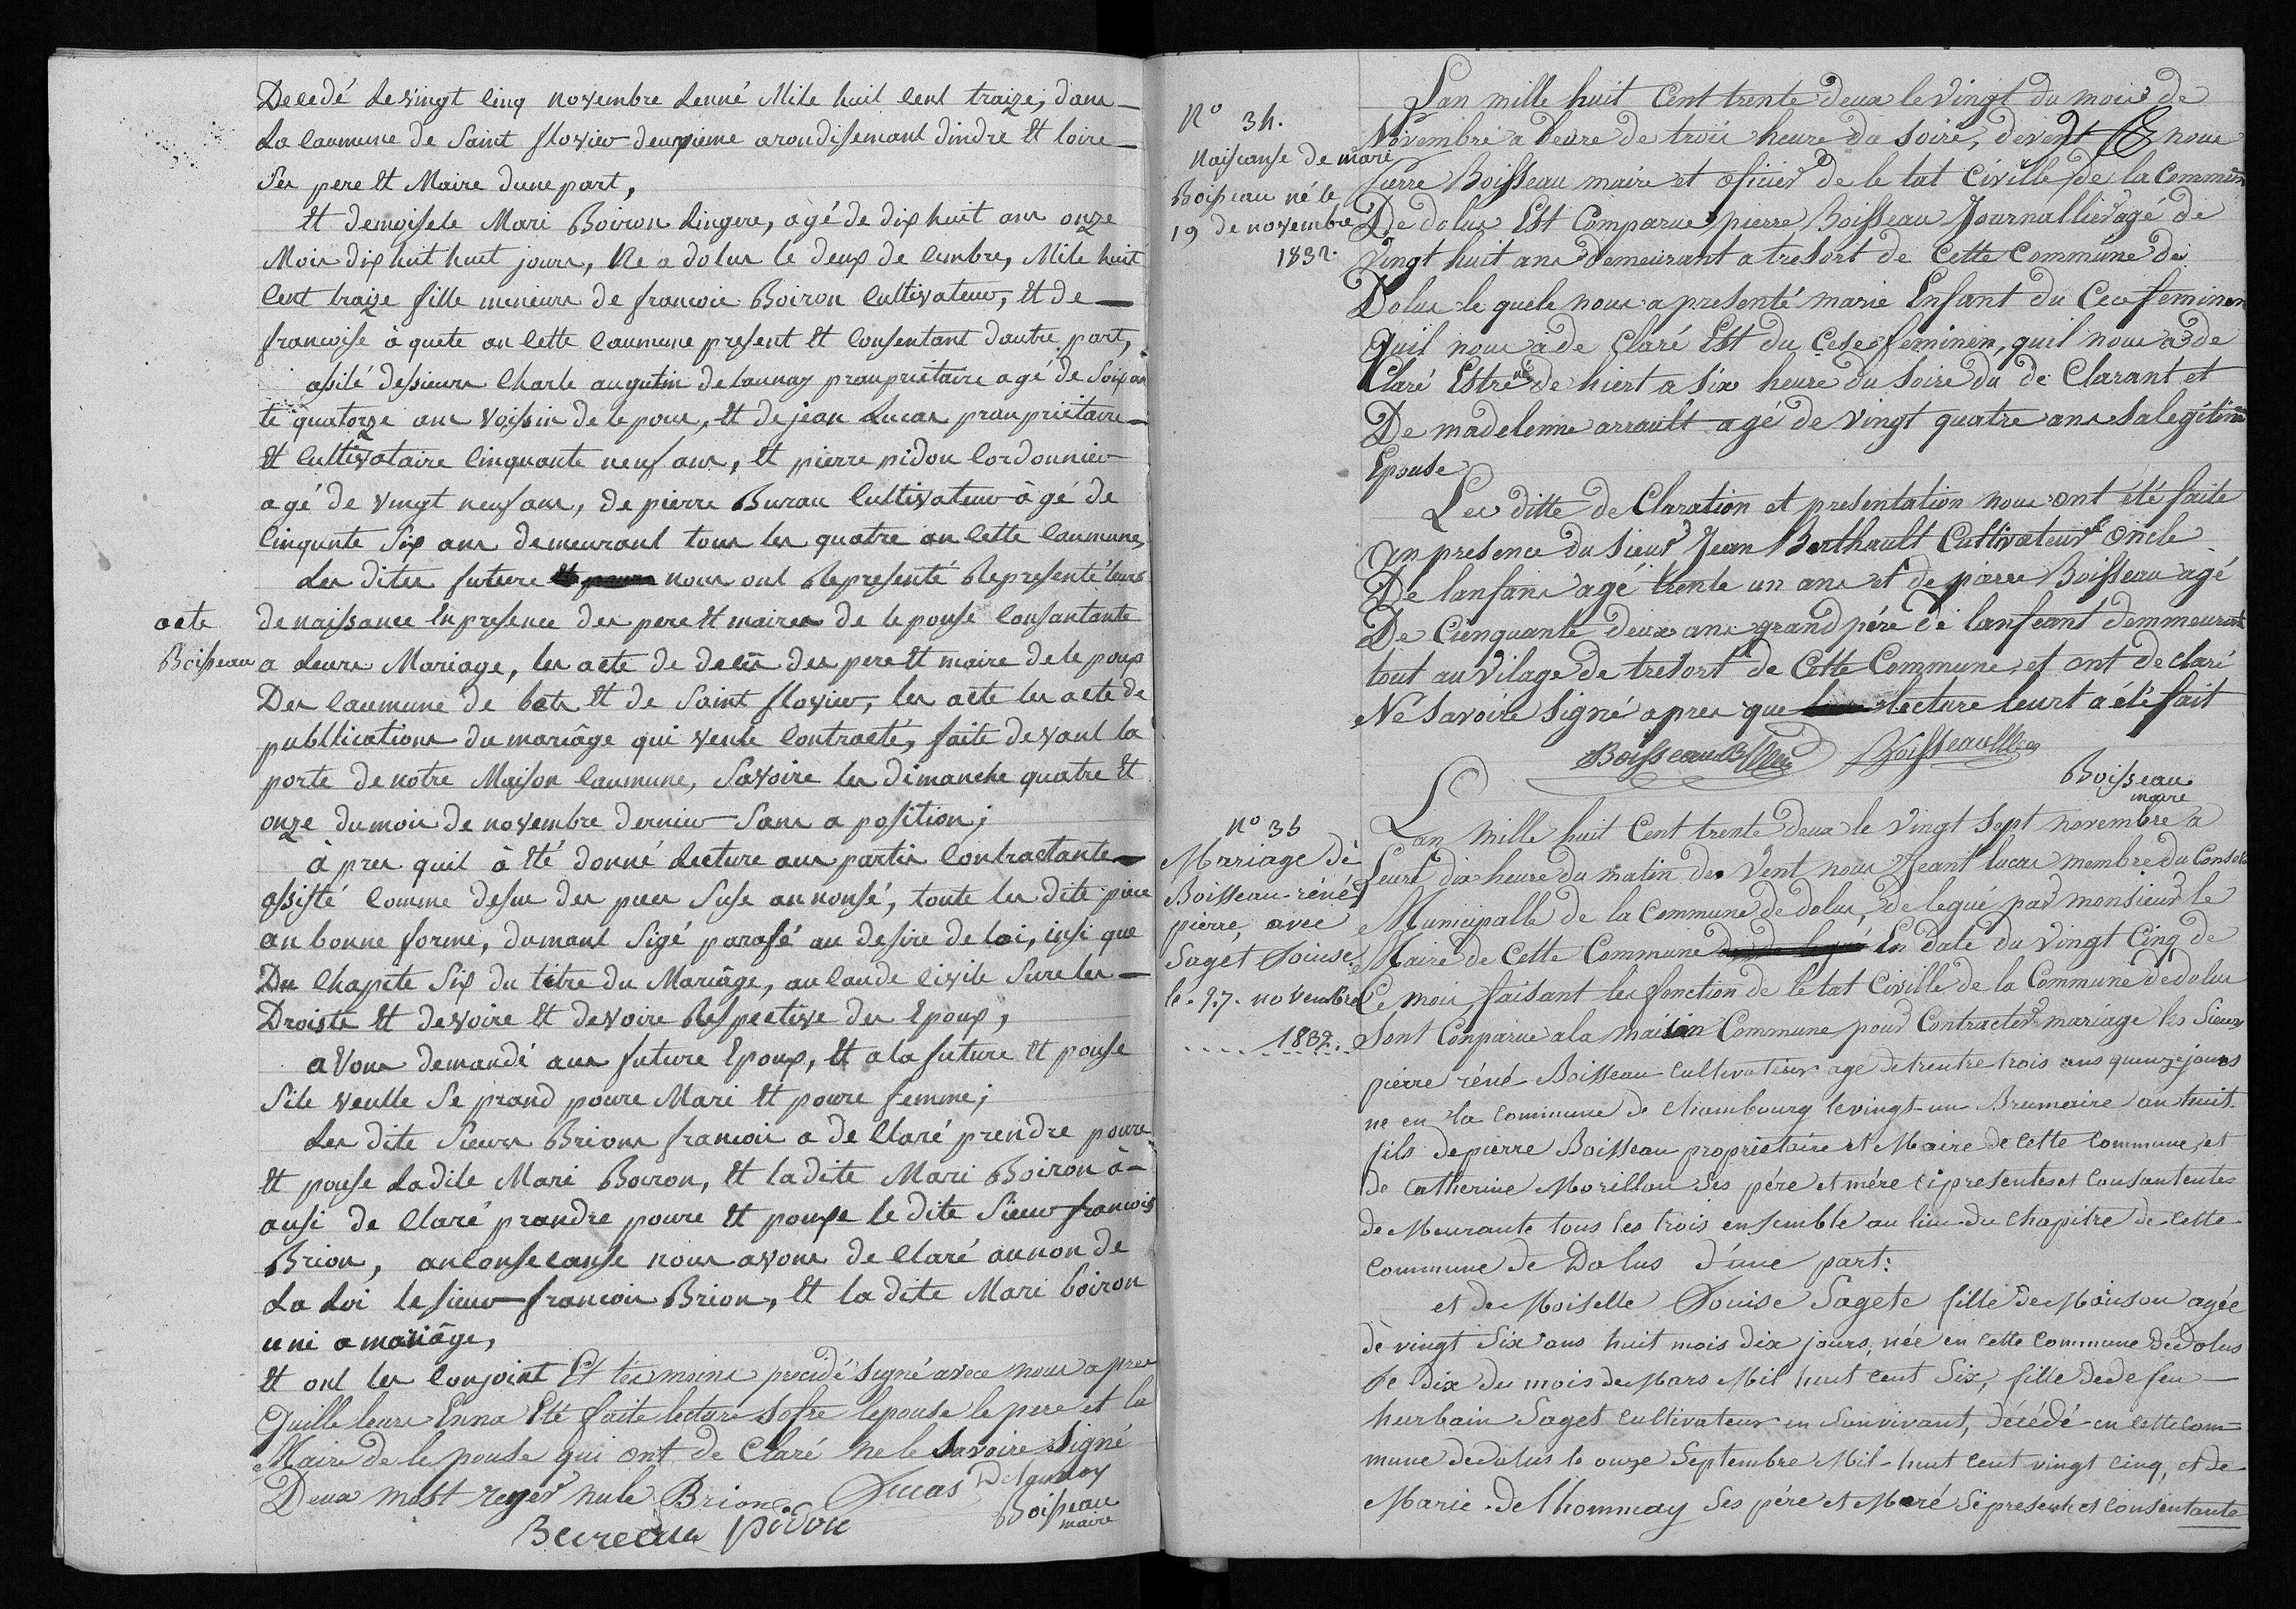 Decedé le vingt cinq novembre lenné Mile huit cent traize, dans
La caumune de Saint flovier deuxieme arondisemant dindre Et loire
Ses pere Et Maire dune part,
Et demoisele Mari Boiron Lingere, agé de dix huit ans onze
Mois dix huit huet jours, Ne a dolus le deux de cembre, Mile huit
cent traize fille meneure de francois Boiron Cultivateur, Et de
francoise à quete an cette caumune present Et Consentant dautre part,
asité desieurs Charle augutin delaunay praupriétaire agé de Soixan
te quatorze ans Voissin de lepoux, Et de jean Lucas praupriétaire
Et Cultivataire Cinquante neuf ans, Et pierre pidou Cordonnier
agé de vingt neuf ans, de pierre Burau Cultivateur âgé de
Cinqunte Six ans demeurant tous les quatre an cette caumune,
Les dites future nous ont Representé Representé leurs
acte
de naissance En presence des pere Et maires de lepouse Consantante
Boisseau
a Leurs Mariage, les acte de decès des pere Et maire de lepoux
Des caumune de betz Et de Saint flovier, les acte les acte de
publlications du mariâge qui veule Contracté, faite devant la
porte de notre Maison caumune, Savoire les dimanche quatre Et
onze du mois de novembre dernier Sans a position;
à pres quil à Eté donné Lecture aux partis Contractante
assisté Comme desus des pies Suse annonsé, toute les dite pies
an bonne forme, dumant Sigé parafé au desire de loi, insi que
Du Chapite Six du titre du Mariâge, au caude Civile Sure les
Droiste Et devoire Et devoire Respective des Epoux,
aVons demandé aux future Epoux, Et a la future Et pouse
Sile veulle Se prand poure Mari Et poure femme;
Les dite Sieurs Brions francois a de Claré prendre poure
Et pouse Ladite Mari Boiron, Et la dite Mari Boiron à
ausi de Claré prandre poure Et poupe le dite Sieur francois
Brion, anconsecanse nous avons de Claré au non de
La Loi le sieur francois Brion, Et la dite Mari boiron
uni a mariâge,
Et ont les Conjoint Et tesmoins procédé signé avece nous apres
Quille leurs Enna Eté faite lecture sofre lepouse le pere et la
Maire de le pouse qui ont de Claré ne le Savoire Signé
Deux most reyer nule Brion Lucas Delaunay
Bureau pidou Boisseau
maire
N° 34.
Naiscanse de mari
Boisseau né le
19 de novembre
1832.
Lan mille huit Cent trente deux le vingt du mois de
Novembre a leure de trois heure du soire, devent nous
Pierre Boisseau maire et oficier de le tat Civille de la Commune
De dolus Est Comparue pierre Boisseau Journallier agé de
Vingt huit ans demeurant a tresort de Cette Commune de
Dolus le quele nous a presenté marie Enfant du Cexe feminen
Quil nous à de Claré Est du Cese feminen, quil nous a de
Claré Estre né de hiert a six heure du soire du de Clarant et
De madelenne arrault agé de vingt quatre ans sa legétime
Epouse
Les ditte de Claration et presentation nous ont été faite
An presence du sieur Jean Berthault Cultivateur oncle
De lanfans agé trente un ans et de pierre Boisseau agé
De Cinquante deux ans grand pére de lanfeant demmeurant
tout au vilage de tresort de Cette Commune et ont de claré
Né savoire signé apres que lecture leurt a été fait
Boisseau Boisseau
Boisseau
maire
n° 35
Mariage de
Boisseau réné
pierre, avec
Saget Louise
le 27 novembre
1832.
Lan mille huit Cent trente deux le vingt sept novembre a
Leure dix heure du matin de Vent nous Jeant lucas membre du Conseil
Municipalle de la Commune de dolus, de legué par monsieur le
Maire de Cette Commune En date du vingt Cinq de
Ce mois, faisant les fonction de le tat Civille de la Commune de dolus
Sont Conparue a la maison Commune pour Contracter mariage les Sieur
pierre réné Boisseau cultivateur agé de trentre trois ans quenze jours
ne en la commune de chambourg le vingt-un Brumaire an huit.
fils de pierre Boisseau propriétaire et Maire de cette commune, et
de Catherine Morillon ses pére et mére ci présentes et consantentes
de Meurante tous les trois ensemble au lieu du chapitre de cette
commune de Dolus d'une part:
et de Moiselle Louise Sagete fille de Maison agée
de vingt Six ans huit mois dix jours, née en cette commune de dolus
le dix du mois de Mars Mil huit cent Six, fille de defeu
hurbain Saget cultivateur en sonvivant, décédé en cette com-
mune de dolus le onze Septembre Mil huit cent vingt cinq, et de
Marie de lhommay Ses pére et Meré Si presente et consentante